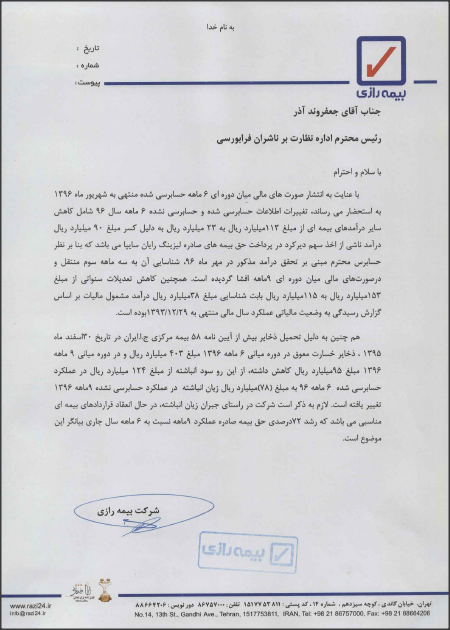 به نام خدا
تاریخ :
شماره :
پیوست:
بیمه رازی
جناب آقای جعفروند آذر
رئیس محترم اداره نظارت بر ناشران فرابورسی
با سلام و احترام
با عنایت به انتشار صورت های مالی میان دوره ای ۶ ماهه حسابرسی شده منتهی به شهریور ماه ۱۳۹۶
به استحضار می رساند، تغییرات اطلاعات حسابرسی شده و حسابرسی نشده ۶ ماهه سال ۹۶ شامل کاهش
سایر درآمدهای بیمه ای از مبلغ ۱۱۳میلیارد ریال به ۲۳ میلیارد ریال به دلیل کسر مبلغ ۹۰ میلیارد ریال
درآمد ناشی از اخذ سهم دیرکرد در پرداخت حق بیمه های صادره لیزینگ رایان سایپا می باشد که بنا بر نظر
حسابرس محترم مبنی بر تحقق درآمد مذکور در مهر ماه ۹۶، شناسایی آن به سه ماهه سوم منتقل و
درصورت‌های مالی میان دوره ای ۹ماهه افشا گردیده است. همچنین کاهش تعدیلات سنواتی از مبلغ
۱۵۳میلیارد ریال به ۱۱۵میلیارد ریال بابت شناسایی مبلغ ۳۸میلیارد ریال درآمد مشمول مالیات بر اساس
گزارش رسیدگی به وضعیت مالیاتی عملکرد سال مالی منتهی به ۱۳۹۳/۱۲/۲۹بوده است.
هم چنین به دلیل تحمیل ذخایر بیش از آیین نامه ۵۸ بیمه مرکزی ج.ا.ایران در تاریخ ۳۰اسفند ماه
۱۳۹۵ ، ذخایر خسارت معوق در دوره میانی ۶ ماهه ۱۳۹۶ مبلغ ۴۰۳ میلیارد ریال و در دوره میانی ۹ ماهه
۱۳۹۶ مبلغ ۹۵میلیارد ریال کاهش داشته، از این رو سود انباشته از مبلغ ۱۲۴ میلیارد ریال در عملکرد
حسابرسی شده ۶ ماهه ۹۶ به مبلغ (۷۸)میلیارد ریال زیان انباشته در عملکرد حسابرسی نشده ۹ماهه ۱۳۹۶
تغییر یافته است. لازم به ذکر است شرکت در راستای جبران زیان انباشته، در حال انعقاد قراردادهای بیمه ای
مناسبی می باشد که رشد ۷۲درصدی حق بیمه صادره عملکرد ۹ماهه نسبت به ۶ ماهه سال جاری بیانگر این
موضوع است.
شرکت بیمه رازی
بیمه رازی
تهران، خیابان گاندی ، کوچه سیزدهم ، شماره ۱۴ ، کد پستی : ۱۵۱۷۷۵۳۸۱۱ تلفن : ۸۶۷۵۷۰۰۰ دورنویس : ۸۸۶۶۴۲۰۶
No.14, 13th St., Gandhi Ave., Tehran, 1517753811, IRAN, Tel: +98 21 86757000, Fax: +98 21 88664206
www.razi24.ir
info@razi24.ir